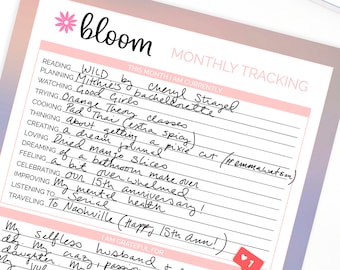 bloom
MONTHLY TRACKING
THIS MONTH I AM CURRENTLY
READING WILD by Cheryl Strayed
PLANNING Mithrie's bachelorette
WATCHING Good Girls
TRYING Orange Theory classes
COOKING Pad Thai (extra spicy)
THINKING about getting a pixie cut (#emmawatson)
CREATING a dream journal
LOVING Dried mango slices
DREAMING of a bathroom makeover
FEELING a bit overwhelmed
CELEBRATING our 15th anniversary!
IMPROVING My mental health
LISTENING TO Serial
TRAVELING To Nashville (Happy 15th Ann!)
I AM GRATEFUL FOR
My selfless husband
my crazy, passi
1